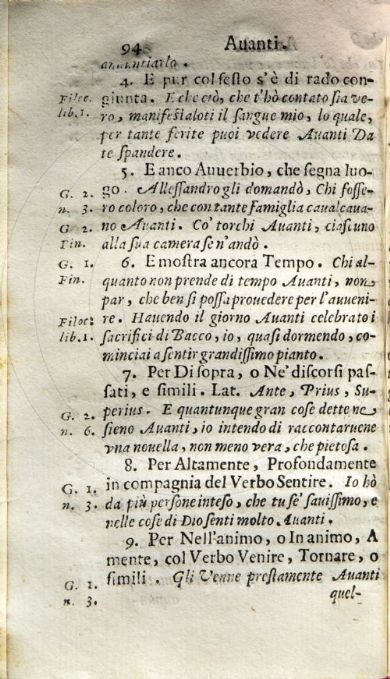 94 Auanti.
annuntiarlo.
4. E pur col sesto s'è di rado con-
Filoc. giunta. E che ciò, che t'hò contato sia ve-
lib. 1. ro, manifestaloti il sangue mio, lo quale,
per tante ferite puoi vedere Auanti Da
te spandere.
5. E anco Auuerbio, che segna luo-
G. 2. go. Allessandro gli domandò, Chi fosse-
n. 3. ro coloro, che con tante famiglia caualcaua-
G. 2. no Auanti. Co' torchi Auanti, ciascuno
Fin. alla sua camera se n'andò.
G. 1. 6. E mostra ancora Tempo. Chi al-
Fin. quanto non prende di tempo Auanti, non
par, che ben si possa prouedere per l'auueni-
Filoc. re. Hauendo il giorno Auanti celebrato i
lib. 1. sacrifici di Bacco, io, quasi dormendo, co-
minciai a sentir grandissimo pianto.
7. Per Di sopra, o Ne' discorsi pas-
sati, e simili. Lat. Ante, Prius, Su-
G. 2. perius. E quantunque gran cose dette ne
n. 6. sieno Auanti, io intendo di raccontaruene
vna nouella, non meno vera, che pietosa.
8. Per Altamente, Profondamente
G. 1. in compagnia del Verbo Sentire. Io hò
n. 3. da più persone inteso, che tu se' sauissimo, e
nelle cose di Dio senti molto Auanti.
9. Per Nell'animo, o In animo, A
mente, col Verbo Venire, Tornare, o
G. 1. simili. Gli Venne prestamente Auanti
n. 3. quel-